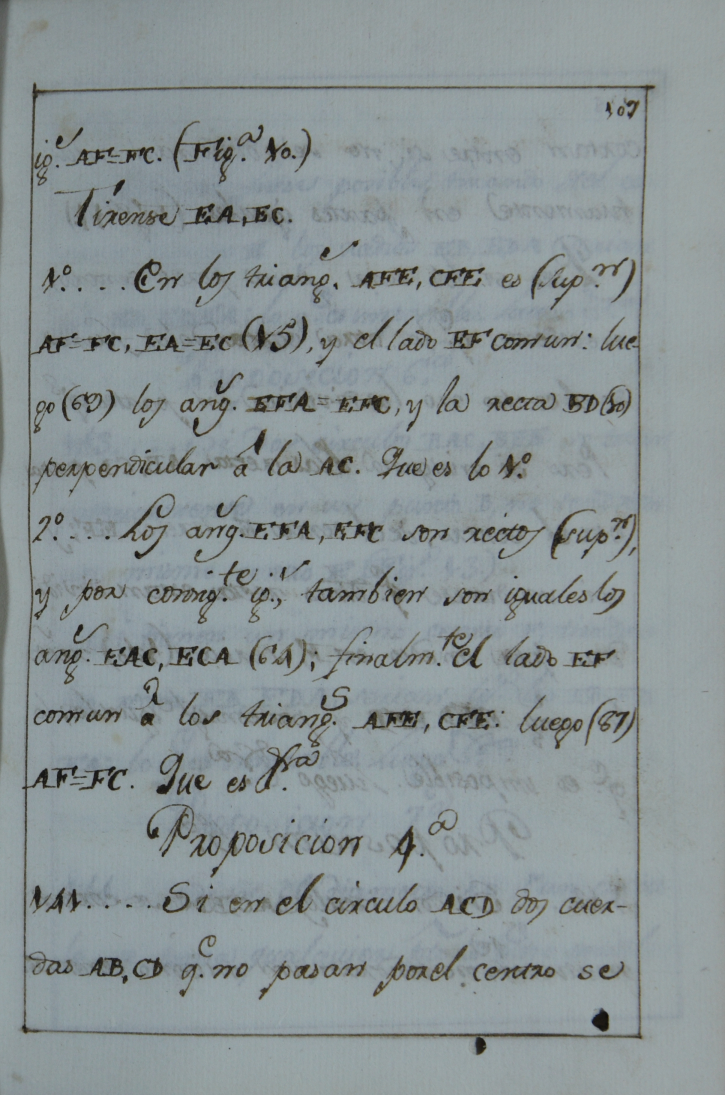 107
ig.s AF=FC. (Fig.a 10.)
Tirense EA, EC.
1.o .... En los triang.s AFE, CFE es (sup.n)
AF=FC, EA=EC (15), y el lado EF comun: lue-
go (69) los ang.s EFA=EFC, y la recta BD (30)
perpendicular á la AC. Que es lo 1.o
2.o .... Los ang.s EFA, EFC son rectos (sup.n),
y por consig.te ig.s, tambien son iguales los
ang.s EAC, ECA (61); finalm.te el lado EF
comun á los triang.s AFE, CFE: luego (87)
AF=FC. Que es
Proposicion 4.a
111 .... Si en el circulo ACD dos cuer-
das AB, CD q.e no pasan por el centro se